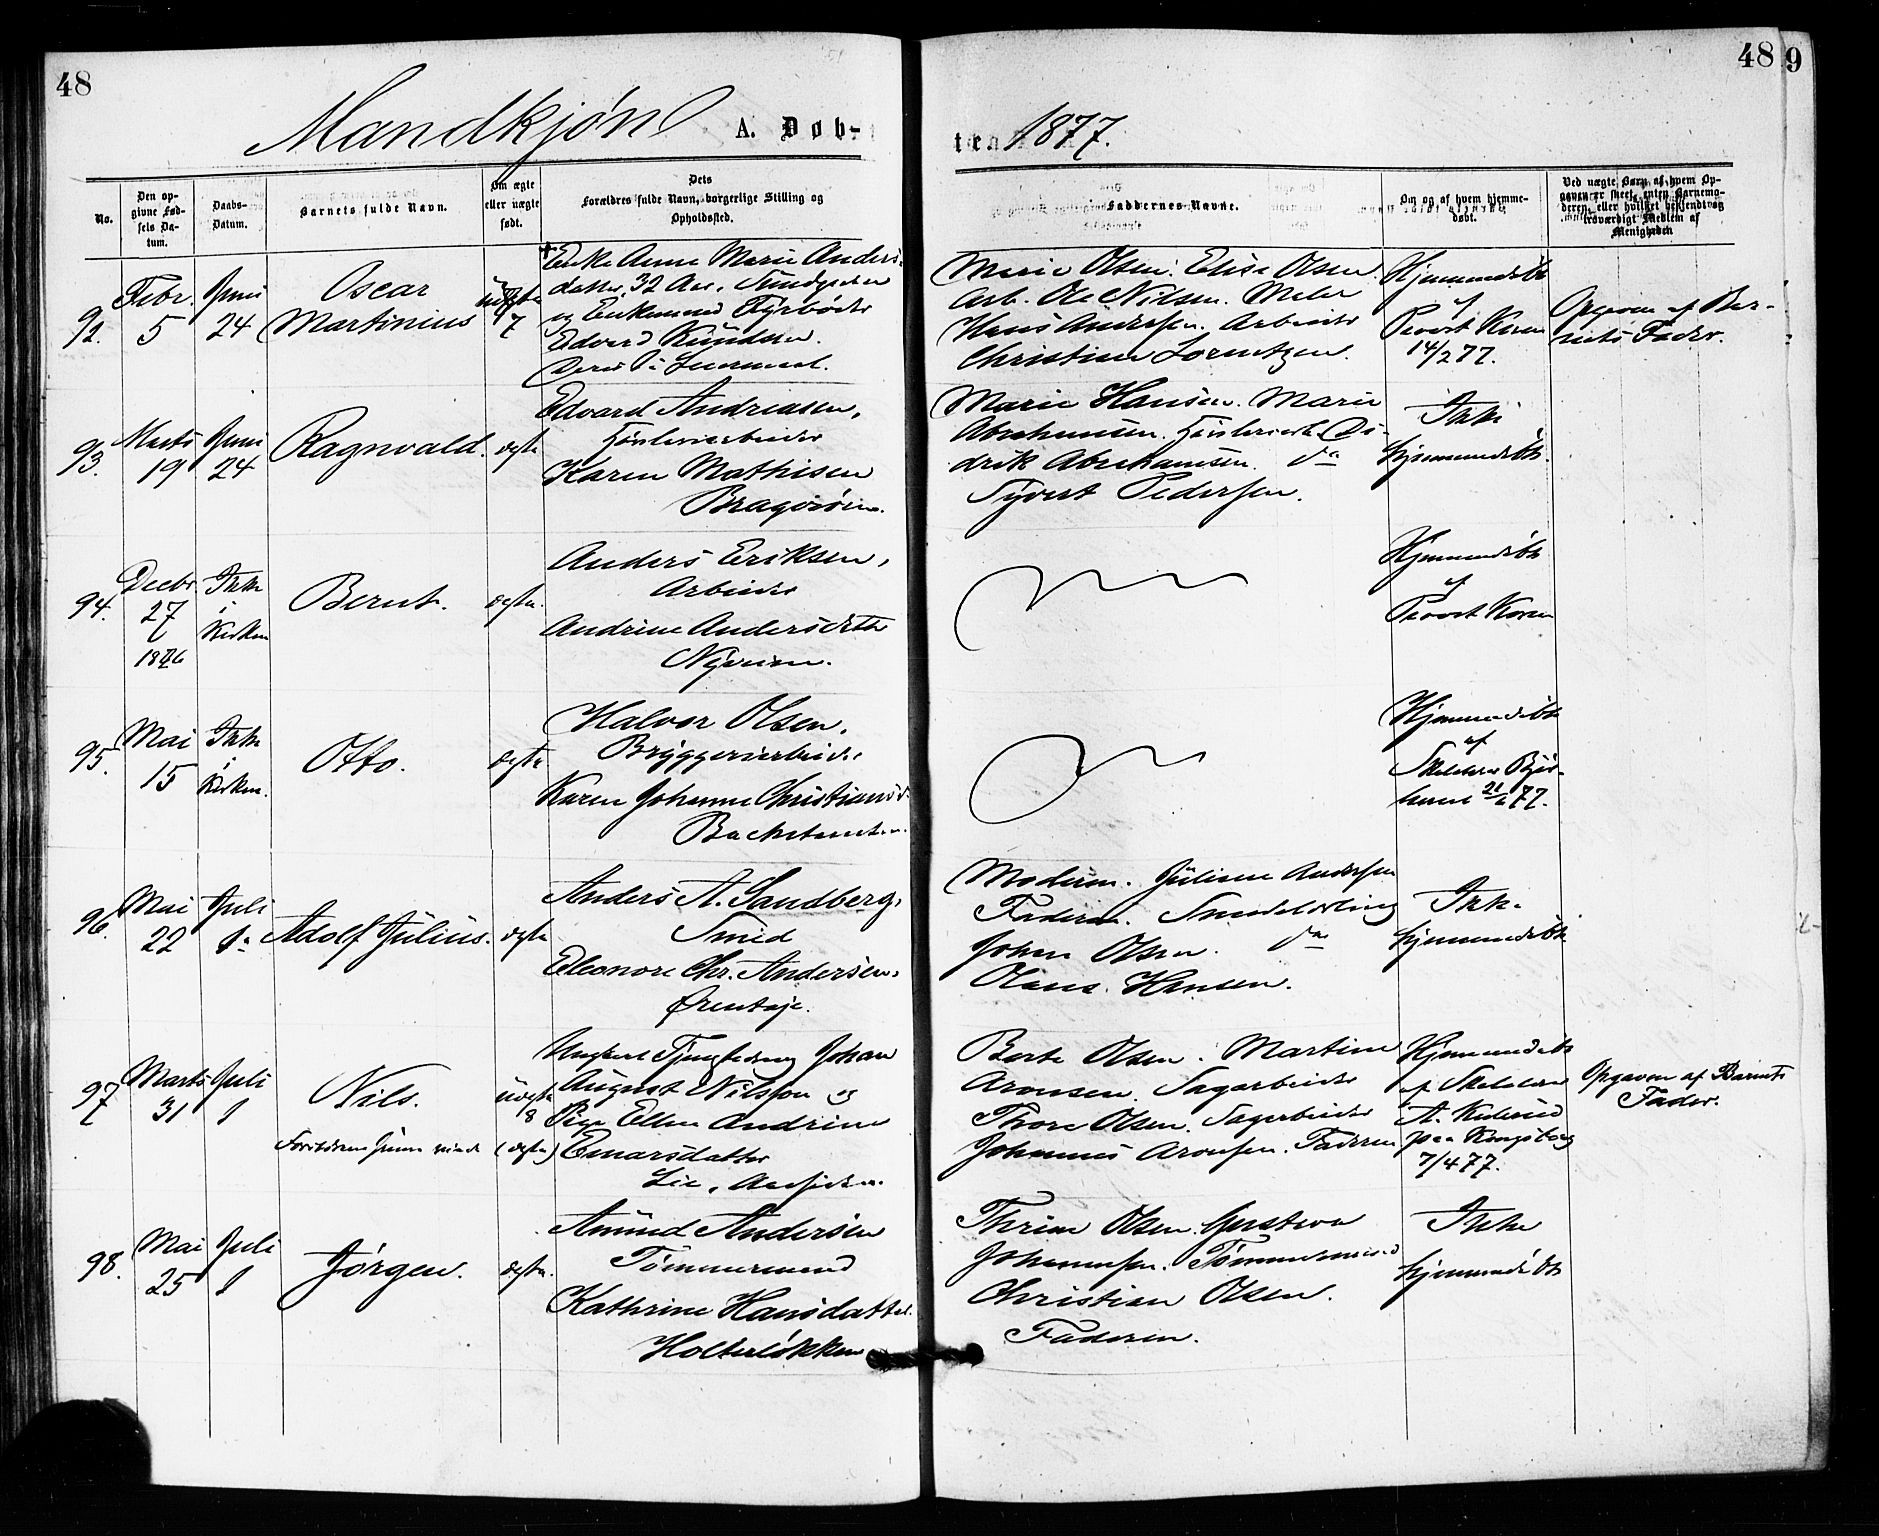 48
48
9
Mandkjøn
A. Døb-
tæ
1877.
No.
Den op-
givne Fød-
sels Da-
tum.
Daabs-
Datum.
Barnets fulde Navn.
Om ægte
eller uægte
født.
Dets
Forældres fulde Navn, borgerlige Stilling og
Opholdssted.
Faddernes Navne.
Om og af hvem hjemme-
døbt.
Ved uægte Barn af hvem Op-
gaven er skeet, enten Barnemo-
deren, eller hvilket bekjendt og
troværdigt Medlem af
Menigheden
92.
Febr.
5
Juni
24
Oscar
Martinius
7
Enke Anne Marie Anders-
datter, 32 Aar,
og Enkemand Fyrbøder
Edvard Knudsen.
Marie Olsen. Elise Olsen.
Arb. Ole Nilsen. Maler
Hans Andersen. Arbeider
Christian Lorentzen.
Hjemmedøbt
af
Provst Koren
14/2 77.
Opgaven af Bar-
nets Fader.
93.
Marts
19
Juni
24
Ragnvald.
ægte
Edvard Andreasen,
Karen Mathisen
Bragerøen.
Marie Hansen. Marie
Abrahamsen.
drik Abrahamsen. do
Syvert Pedersen.
Ikke
hjemmedøbt.
94.
Decbr.
27
1876
Ikke
i
Kirken
Bernt.
ægte.
Anders Eriksen,
Arbeider
Andrine Andersdatter
Nyveien.
Hjemmedøbt
af
Provst Koren
95.
Mai
15
Ikke
i
Kirken.
Otto.
ægte
Halvor Olsen,
Bryggeriarbeider
Karen Johanne Christiansd.
Hjemmedøbt
af
77.
96.
Mai
22
Juli
1.
Adolf Julius.
ægte
Anders A. Sandberg,
Smed
Eleonore Chr. Andersen,
Øren
Moderen. Juliane Andersen
Faderen. Smedelærling
Johan Olsen. do
Hansen.
Ikke
hjemmedøbt
97
Marts
31
Juli
1
Nils.
Forældrene
uægte
8
(ægte)
Ungkarl Johan
August Nilsson og
Pige Ellen Andrine
Einarsdatter
Berte Olsen. Martine
Aronsen. Sagarbeider
Thore Olsen. Sagarbeider
Johannes Aronsen. Faderen
Hjemmedøbt
af
A.
paa Kongsberg
7/4 77.
Opgaven af Barnets
Fader.
98.
Mai
25
Juli
1
Jørgen.
ægte.
Amund Andersen
Tømmermand
Kathrine Hansdatter.
Holterløkken
Thrine Olsen. Gustava
Johannesen. Tømmermand
Christian Olsen.
Faderen.
Ikke
hjemmedøbt